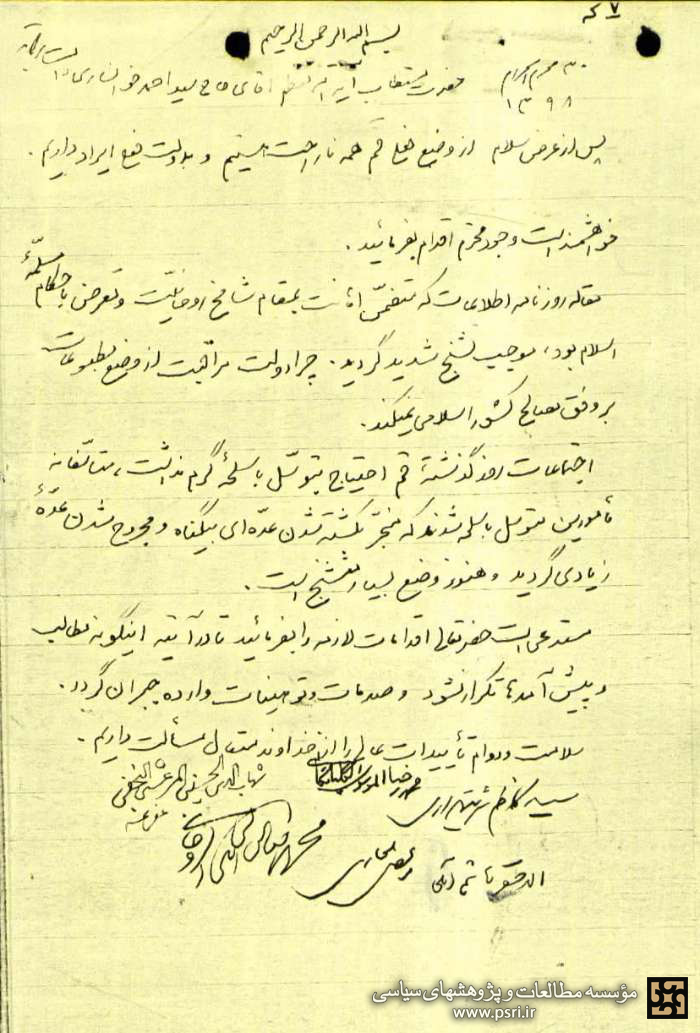 بسم الله الرحمن الرحیم
۳۰ محرم الحرام
۱۳۹۸
حضرت مستطاب آیة الله معظم آقای حاج سید احمد خوانساری دامت برکاته
پس از عرض سلام از وضع فجیع قم همه ناراحت هستیم و بدولت فعلی ایراد داریم.
خواهشمند است وجود محترم اقدام بفرمائید.
مقاله روزنامه اطلاعات که متضمّن اهانت بمقام شامخ روحانیّت و تعرض باحکام مسلّمۀ
اسلام بود، موجب تشنج شدید گردید. چرا دولت مراقبت از وضع مطبوعات
بر وفق مصالح کشور اسلامی نمیکند.
اجتماعات روز گذشتۀ قم احتیاج بتوسّل باسلحۀ گرم نداشت، متأسّفانه
مأمورین متوسل باسلحه شدند که منجرّ بکشته شدن عدّه‌ای بیگناه و مجروح شدن عدّۀ
زیادی گردید و هنوز وضع بسیار متشنج است.
مستدعی است حضرتعالی اقدامات لازمه را بفرمائید تا در آتیه اینگونه مطالب
و پیش آمدها تکرار نشود و صدمات و توهینات وارده جبران گردد.
سلامت و دوام تأییدات عالی را از خداوند متعال مسألت داریم.
سید کاظم شریعتمداری
محمد رضا الموسوی الگلپایگانی
شهاب الدین الحسینی المرعشی النجفی
الاحقر هاشم آملی
مرتضی الحائری
مؤسسه مطالعات و پژوهشهای سیاسی
www.psri.ir